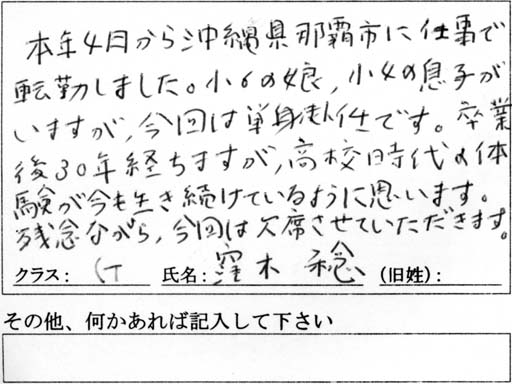 本年4月から沖縄県那覇市に仕事で
転勤しました。小6の娘,小4の息子が
いますが,今回は単身赴任です。卒業
後30年経ちますが,高校時代の体
験が今も生き続けているように思います。
残念ながら,今回は欠席させていただきます。
クラス: 氏名: 窪木 稔 (旧姓):
その他、何かあれば記入して下さい